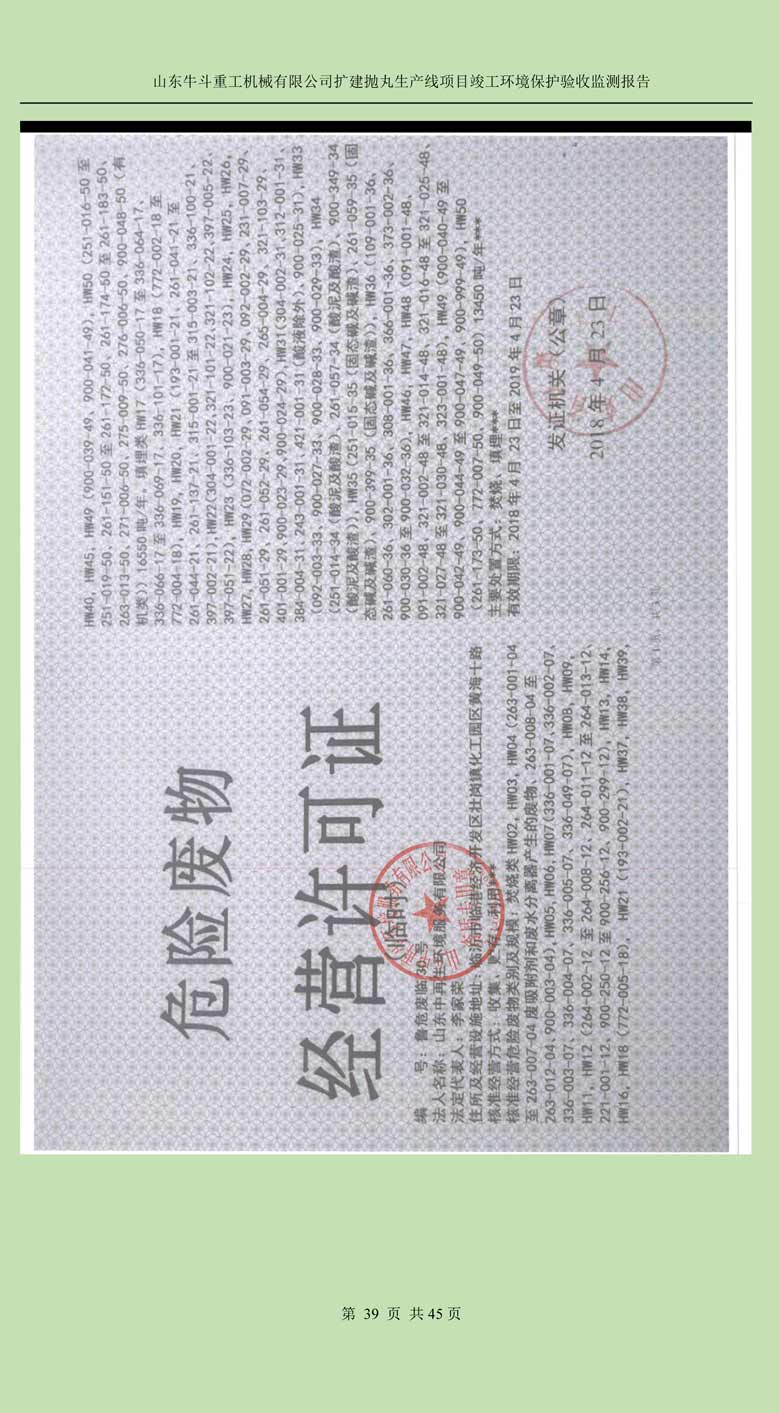 山东牛斗重工机械有限公司扩建抛丸生产线项目竣工环境保护验收监测报告
危险废物
经营许可证
(临时)
编 号:鲁危废临30号
法人名称:山东中再生环境服务有限公司
法定代表人:李家荣
住所及经营设施地址:临沂市临港经济开发区壮岗镇化工园区黄海十路
核准经营方式:收集、贮存、利用***
核准经营危险废物类别及规模:焚烧类 HW02, HW03, HW04 (263-001-04
至 263-007-04 废吸附剂和废水分离器产生的废物、263-008-04 至
263-012-04、900-003-04), HW05, HW06, HW07 (336-001-07, 336-002-07、
336-003-07、336-004-07、336-005-07、336-049-07), HW08, HW09,
HW11, HW12 (264-002-12 至 264-008-12、264-011-12 至 264-013-12、
221-001-12、900-250-12 至 900-256-12、900-299-12), HW13, HW14,
HW16, HW18 (772-005-18), HW21 (193-002-21), HW37, HW38, HW39,
HW40, HW45, HW49 (900-039-49、900-041-49), HW50 (251-016-50 至
251-019-50、261-151-50 至 261-172-50、261-174-50 至 261-183-50、
263-013-50、271-006-50、275-009-50、276-006-50、900-048-50(有
机类)) 16550 吨/年。填埋类 HW17 (336-050-17 至 336-064-17、
336-066-17 至 336-069-17、336-101-17), HW18 (772-002-18 至
772-004-18), HW19, HW20, HW21 (193-001-21、261-041-21 至
261-044-21、261-137-21、315-001-21 至 315-003-21、336-100-21、
397-002-21), HW22 (304-001-22、321-101-22、321-102-22、397-005-22、
397-051-22), HW23 (336-103-23、900-021-23), HW24, HW25, HW26,
HW27, HW28, HW29 (072-002-29、091-003-29、092-002-29、231-007-29、
261-051-29、261-052-29、261-054-29、265-004-29、321-103-29、
401-001-29、900-023-29、900-024-29), HW31 (304-002-31、312-001-31、
384-004-31、243-001-31、421-001-31(酸液除外)、900-025-31), HW33
(092-003-33、900-027-33、900-028-33、900-029-33), HW34
(251-014-34(酸泥及酸渣)、261-057-34(酸泥及酸渣)、900-349-34
(酸泥及酸渣)), HW35 (251-015-35(固态碱及碱渣)、261-059-35(固
态碱及碱渣)、900-399-35(固态碱及碱渣)), HW36 (109-001-36、
261-060-36、302-001-36、308-001-36、366-001-36、373-002-36、
900-030-36 至 900-032-36), HW46, HW47, HW48 (091-001-48、
091-002-48、321-002-48 至 321-014-48、321-016-48 至 321-025-48、
321-027-48 至 321-030-48、323-001-48), HW49 (900-040-49 至
900-042-49、900-044-49 至 900-047-49、900-999-49), HW50
(261-173-50、772-007-50、900-049-50) 13450 吨/年***
主要处置方式:焚烧、填埋***
有效期限:2018 年 4 月 23 日至 2019 年 4 月 23 日
发证机关(公章)
2018 年 4 月 23 日
第 39 页 共 45 页